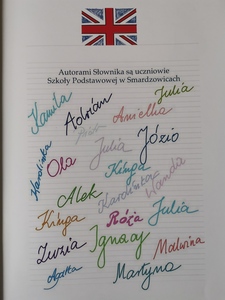 Autorami Słownika są uczniowie
Szkoły Podstawowej w Smardzowicach
Kamila
Adrian
Julia
Anielka
Julia
Józio
Karolinka
Ola
Kinga
Wanda
Karolinka
Alek
Kinga
Rózia
Julia
Zuzia
Ignacy
Malwina
Agatka
Martyna